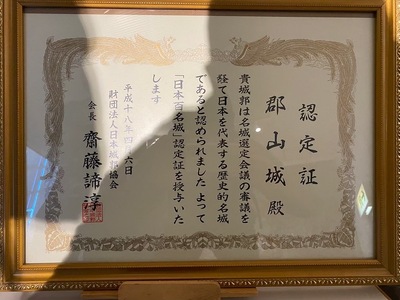 認定証
郡山城 殿
貴城郭は名城選定会議の審議を
経て日本を代表する歴史的名城
であると認められました よって
「日本百名城」認定証を授与いた
します
平成十八年四月六日
財団法人日本城郭協会
会長 齋藤諦淳